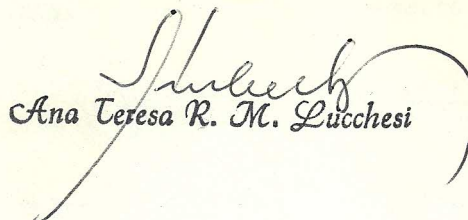 Ana Teresa R. M. Lucchesi